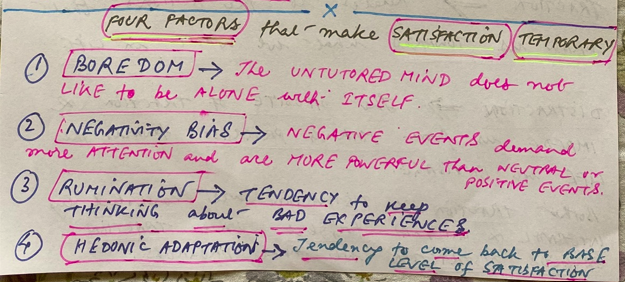 FOUR FACTORS that make SATISFACTION TEMPORARY
① BOREDOM → The UNTUTORED MIND does not
LIKE to be ALONE with ITSELF.
② NEGATIVITY BIAS → NEGATIVE EVENTS demand
more ATTENTION and are MORE POWERFUL than NEUTRAL or
POSITIVE EVENTS.
③ RUMINATION → TENDENCY to keep
THINKING about BAD EXPERIENCES
④ HEDONIC ADAPTATION → Tendency to come back to BASE
LEVEL of SATISFACTION